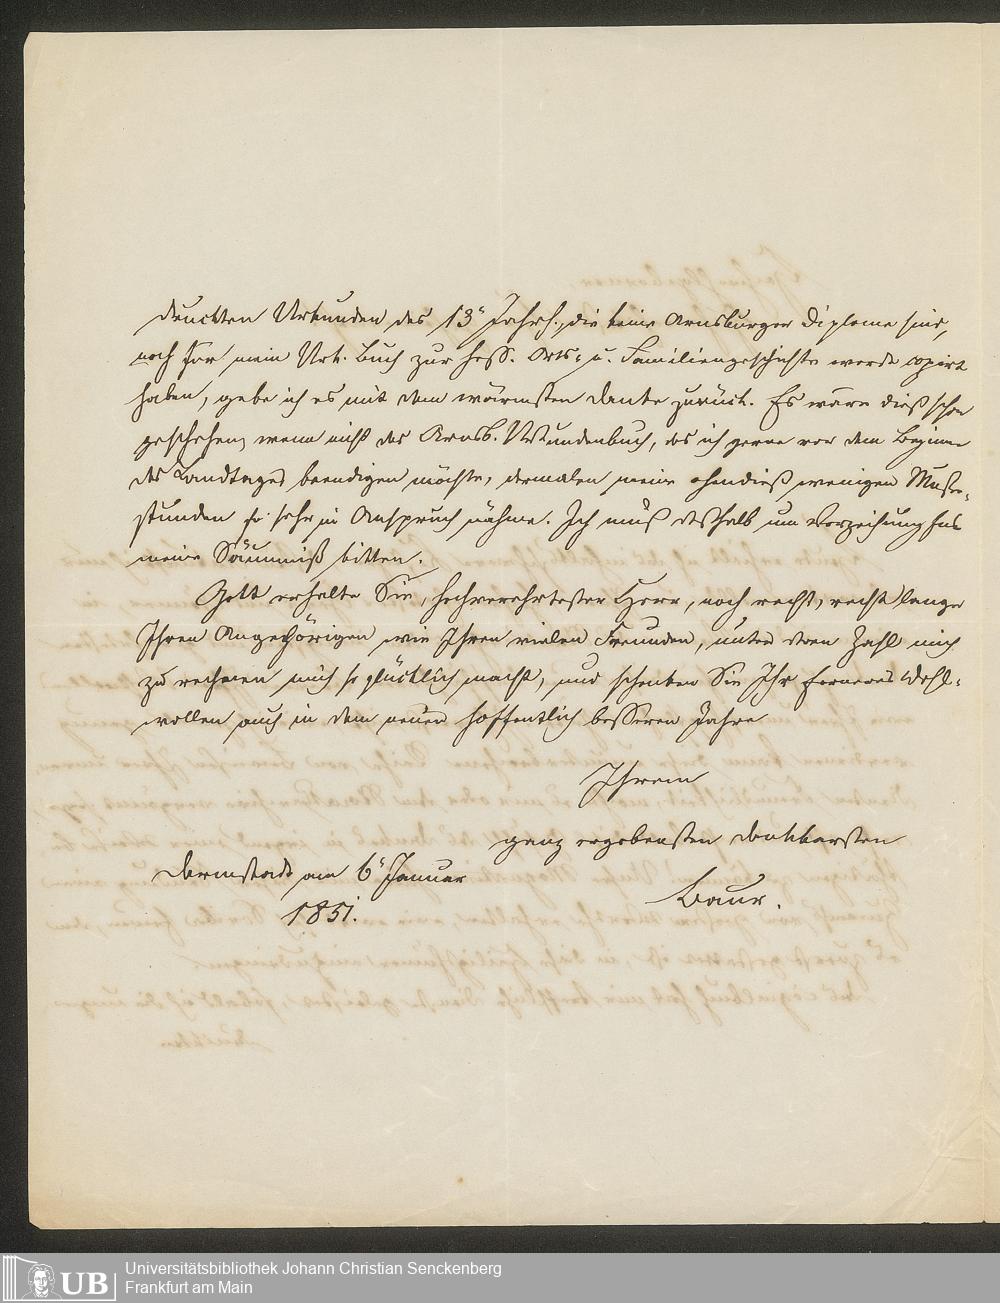 druckten Urkunden des 13ⁿ Jahrh., die keine Arnsburger Diplome sind,
noch für mein Urk. Buch zur hess. Orts- u. Familiengeschichte werde copirt
haben, gebe ich es mit dem wärmsten Danke zurück. Es wäre dieß schon
geschehen, wenn nicht das Arnsb. Urkundenbuch, das ich gerne vor dem Beginne
des Landtages beendigen möchte, dermalen meine ohndieß wenigen Muse-
stunden so sehr in Anspruch nähme. Ich muß deshalb um Verzeihung
meine Säumniß bitten.
Gott erhalte Sie, hochverehrtester Herr, noch recht, recht lange
Ihren Angehörigen wie Ihren vielen Freunden, unter deren Zahl mich
zu rechnen mich so glücklich macht, und schenken Sie Ihr ferneres Wohl-
wollen auch in dem neuen hoffentlich besseren Jahre
Ihrem
ganz ergebensten dankbarsten
Baur.
Darmstadt am 6ⁿ Januar
1851.
Universitätsbibliothek Johann Christian Senckenberg
Frankfurt am Main
UB